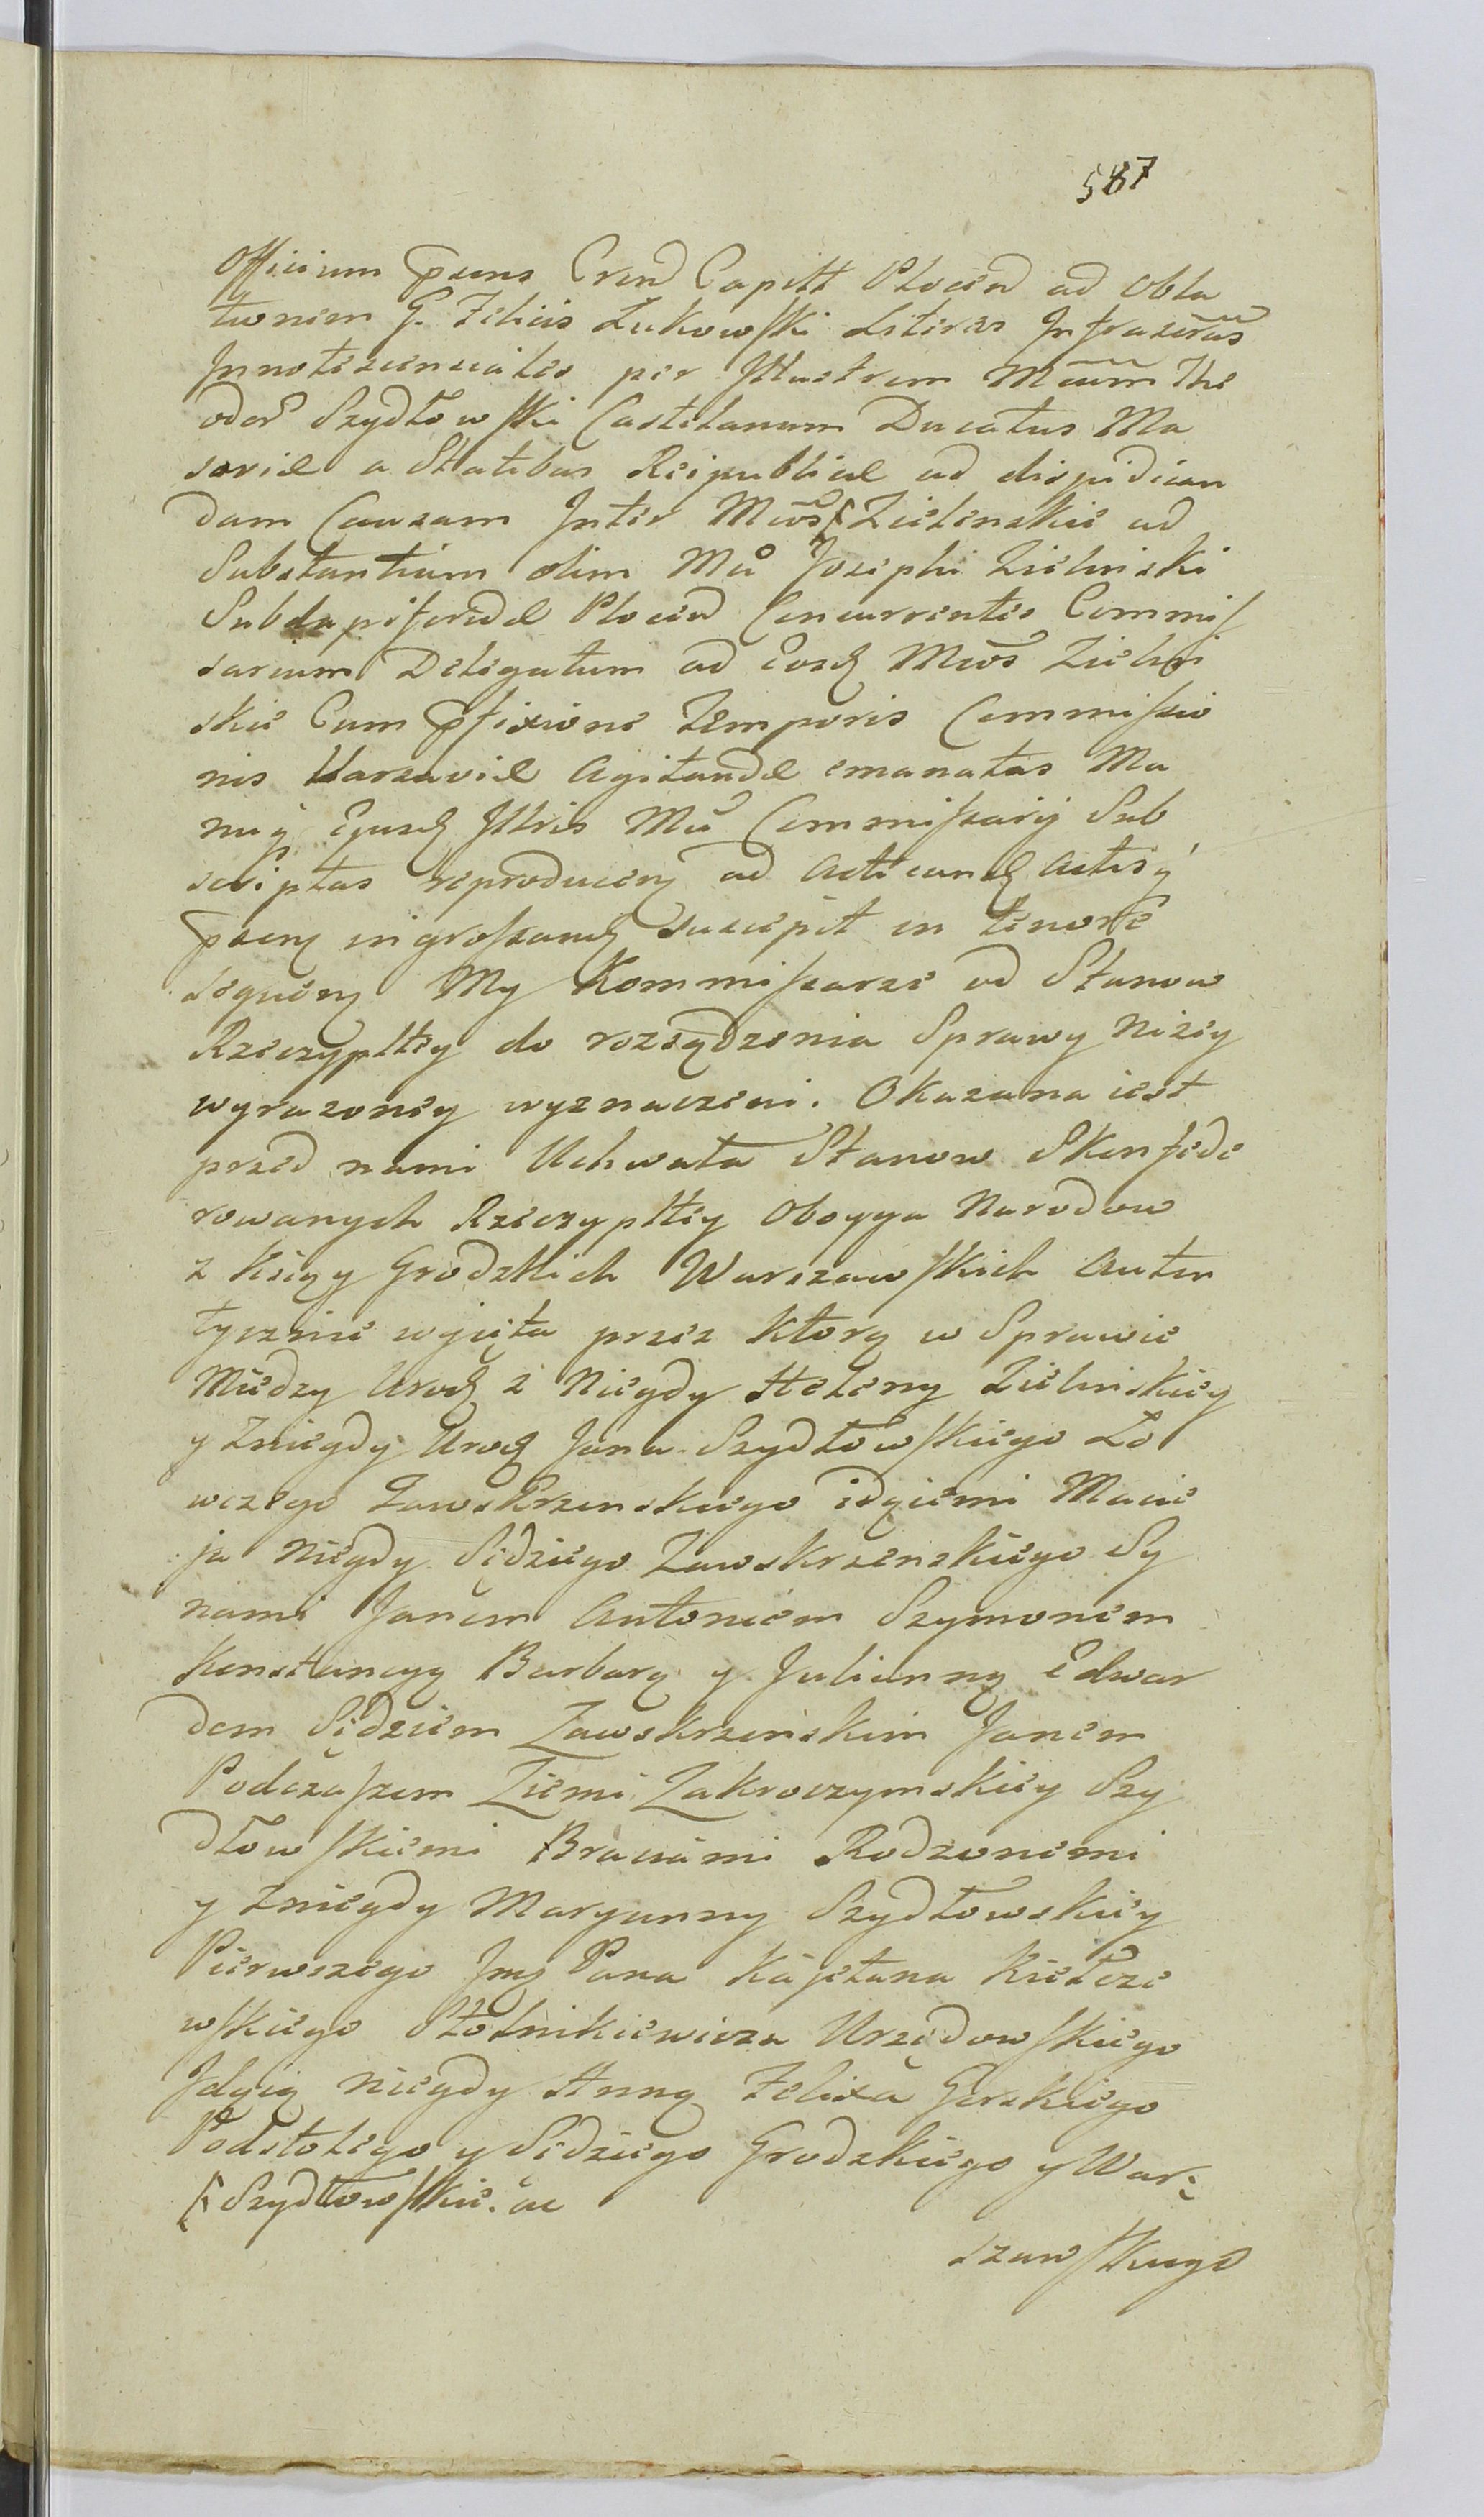 587
Officium Psens Cren Capitt Plocen ad obla
tionem G. Felicis Łukowski Literas Infrascras
Innotescenciales per Illustrem Mcum The
odor Szydłowski Castelanum Ducatus Ma
soviae a Statibus Reipublicae ad dispudican
dam Causam Inter Mcos Zielenskie ad
Substantiam olim Mci Josephi Zielinski
Subdapiferidae Plocen Concurrentes Commis
sarium Delegatum ad Eosd Mcos Zielin
skie Cum Pfixione Temporis Commissio
nis Varsaviae Agitandae emanatas Ma
nuq Ejusd Illris Mci Commissarij Sub
scriptas reproducen ad Acticand Actisq
psen ingrossand suscepit in tenore
sequen My Kommissarze od Stanow
Rzeczypltey do rozsądzenia Sprawy niżey
wyrazoney wyznaczeni. Okazana iest
przed nami Uchwała Stanow Skonfede
rowanych Rzeczypltey Oboyga Narodow
z Xsiąg Grodzkich Warszawskich Auten
tycznie wyięta przez ktorą w Sprawie
Między Urod z Niegdy Heleny Zielinskiey
y zniegdy Urod Jana Szydłowskiego Ło
wczego Zawskrzenskiego idącemi Macie
ja niegdy Sędziego Zawskrzenskiego Sy
nami Janem Antoniem Szymonem
Konstancyą Barbarą y Julianną Edwar
dem Sędziem Zawskrzenskim Janem
Podczaszem Ziemi Zakroczymskiey Szy
dłowskiemi Braciami Rodzonemi
y zniegdy Maryanny Szydłowskiey
Pierwszego Jmc Pana Kajetana Kiełcze
wskiego Stolnikiewicza Urzędowskiego
Jdącą niegdy Anną Felixa Gorskiego
Podstolego y Sędziego Grodzkiego y War-
Szydłowskie. ac
szawskiego